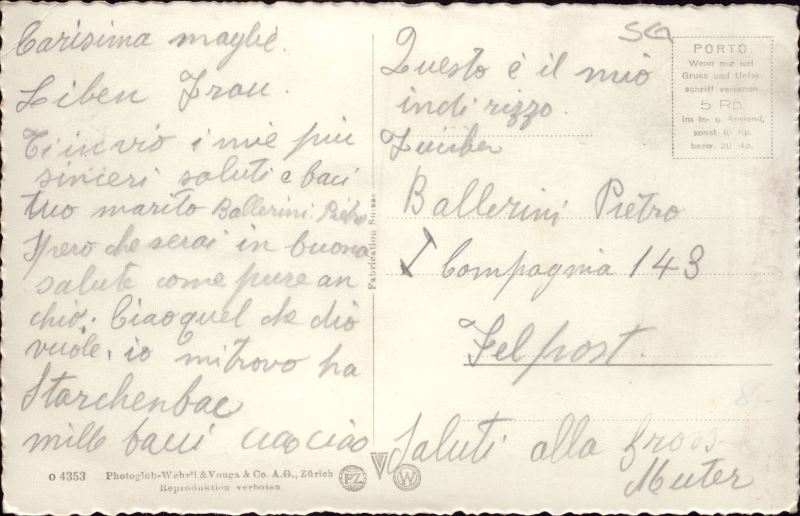 Carisima moglie.
Liben Frau.
Ti invio i mie piu
sinceri saluti e baci
tuo marito Ballerini Pietro
Spero che serai in buona
salute come pure an
chio. Ciao quel che dio
vuole, io mi trovo ha
Starchenbac
mille bacci ciao ciao
O 4353 Photoglob-Wehrli & Vouga & Co. A.G., Zürich
Reproduktion verboten
PZ
V
W
Fabrication Suisse
SG
PORTO
Wenn nur mit
Gruss und Unter-
schrift versehen
5 Rp.
im In- u. Ausland,
sonst 10 Rp.
bezw. 20 Rp.
Questo è il mio
indirizzo.
Ballerini Pietro
Compagnia 143
Felpost.
Saluti alla gross
Muter